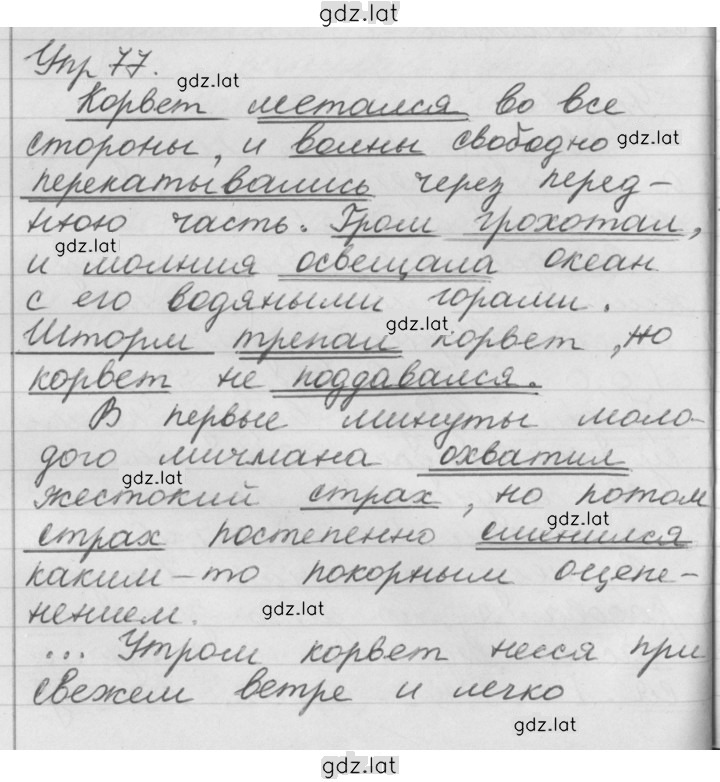 gdz.lat
Упр 77.
gdz.lat
Корвет метался во все
стороны, и волны свободно
gdz.lat
перекатывались через перед-
нюю часть. Гром грохотал,
gdz.lat
и молния освещала океан
с его водяными горами.
gdz.lat
Шторм трепал корвет, но
корвет не поддавался.
В первые минуты моло-
дого мичмана охватил
gdz.lat
жестокий страх, но потом
gdz.lat
страх постепенно сменился
каким-то покорным оцепе-
нением.
gdz.lat
... Утром корвет несся при
свежем ветре и легко
gdz.lat
gdz.lat